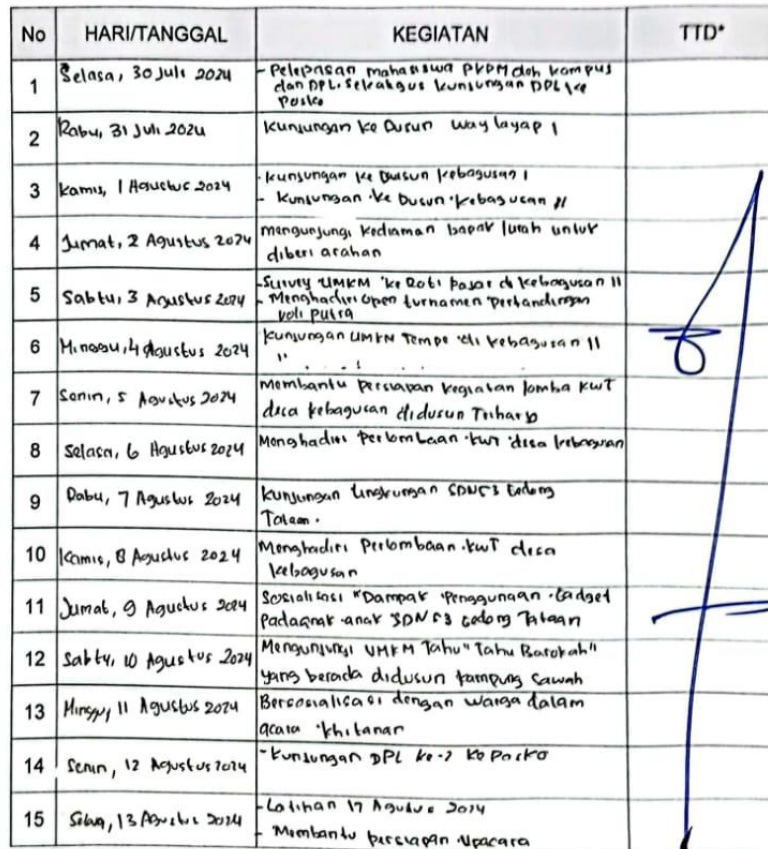 No HARI/TANGGAL KEGIATAN TTD*
1 Selasa, 30 Juli 2024 - Pelepasan mahasiswa PKPM dari kampus
dan DPL. Sekaligus kunjungan DPL ke
Posko
2 Rabu, 31 Juli 2024 Kunjungan ke Dusun Way layap 1
3 Kamis, 1 Agustus 2024 - Kunjungan ke Dusun Kebagusan 1
- Kunjungan ke Dusun Kebagusan II
4 Jumat, 2 Agustus 2024 mengunjungi kediaman bapak lurah untuk
diberi arahan
5 Sabtu, 3 Agustus 2024 - Survey UMKM ke Roti bakar di Kebagusan II
- Menghadiri open turnamen pertandingan
voli putra
6 Minggu, 4 Agustus 2024 Kunjungan UMKM Tempe di Kebagusan II
"
7 Senin, 5 Agustus 2024 Membantu persiapan kegiatan lomba KWT
desa kebagusan didusun Triharjo
8 Selasa, 6 Agustus 2024 Menghadiri perlombaan KWT desa kebagusan
9 Rabu, 7 Agustus 2024 Kunjungan lingkungan SDN 53 Gedong
Tataan.
10 Kamis, 8 Agustus 2024 Menghadiri Perlombaan KWT desa
kebagusan
11 Jumat, 9 Agustus 2024 Sosialisasi "Dampak Penggunaan Gadget
Pada anak-anak SDN 53 Gedong Tataan
12 Sabtu, 10 Agustus 2024 Mengunjungi UMKM Tahu "Tahu Barokah"
yang berada didusun kampung sawah
13 Minggu, 11 Agustus 2024 Bersosialisasi dengan warga dalam
acara khitanan
14 Senin, 12 Agustus 2024 - Kunjungan DPL ke-2 ke Posko
15 Selasa, 13 Agustus 2024 - Latihan 17 Agustus 2024
- Membantu persiapan Upacara